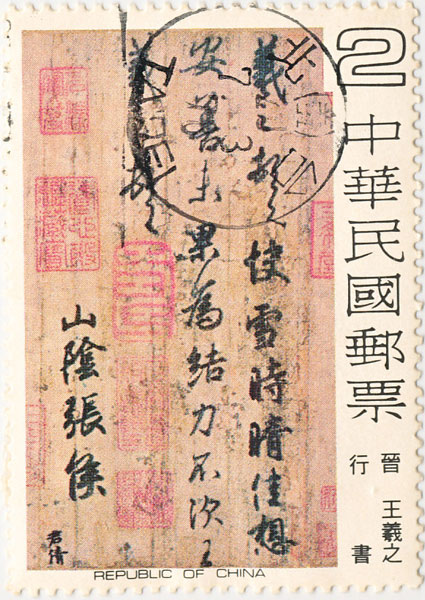 2
中華民國郵票
晉 王羲之
行書
羲之頓首快雪時晴佳想
安善未果為結力不次王
羲之頓首
山陰張侯
君倩
REPUBLIC OF CHINA
TAIPEI